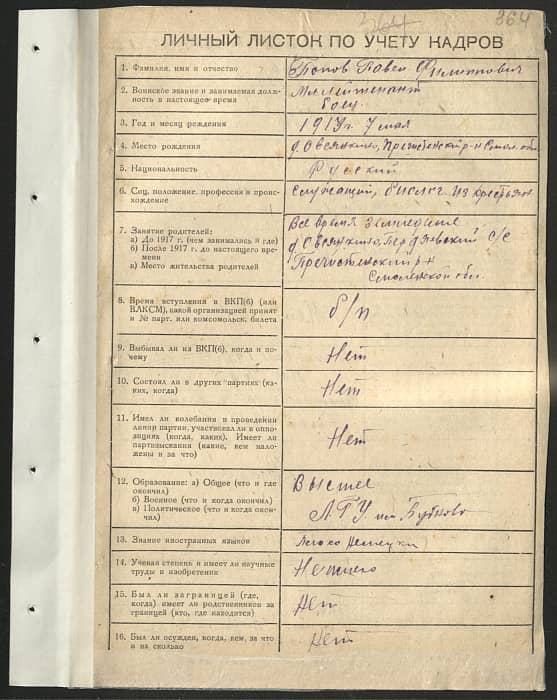 364
ЛИЧНЫЙ ЛИСТОК ПО УЧЕТУ КАДРОВ
1. Фамилия, имя и отчество
Попов Павел Филиппович
2. Воинское звание и занимаемая долж-
ность в настоящее время
Мл лейтенант
боец
3. Год и месяц рождения
7 мая
4. Место рождения
д. Овсянкино, Пречистенский р-н Смол. обл.
5. Национальность
Русский
6. Соц. положение, профессия и проис-
хождение
Служащий, из крестьян
7. Занятие родителей:
а) До 1917 г. (чем занимались и где)
б) После 1917 г. до настоящего вре-
мени
в) Место жительства родителей
Все время земледелие
д Овсянкино, с/с
Пречистенский р-н
Смоленской обл.
8. Время вступления в ВКП(б) (или
ВЛКСМ), какой организацией принят
и № парт. или комсомольск. билета
б/п
9. Выбывал ли из ВКП(б), когда и по-
чему
Нет
10. Состоял ли в других партиях (ка-
ких, когда)
Нет
11. Имел ли колебания в проведении
линии партии, участвовал ли в оппо-
зициях (когда, каких). Имеет ли
партвзыскания (какие, кем нало-
жены и за что)
Нет
12. Образование: а) Общее (что и где
окончил)
б) Военное (что и когда окончил)
в) Политическое (что и когда окон-
чил)
Высшее
ЛГУ им Бубнова
13. Знание иностранных языков
14. Ученая степень и имеет ли научные
труды и изобретения
Не имею
15. Был ли заграницей (где,
когда) имеет ли родственников за
границей (кто, где находится)
Нет
16. Был ли осужден, когда, кем, за что
и на сколько
Нет